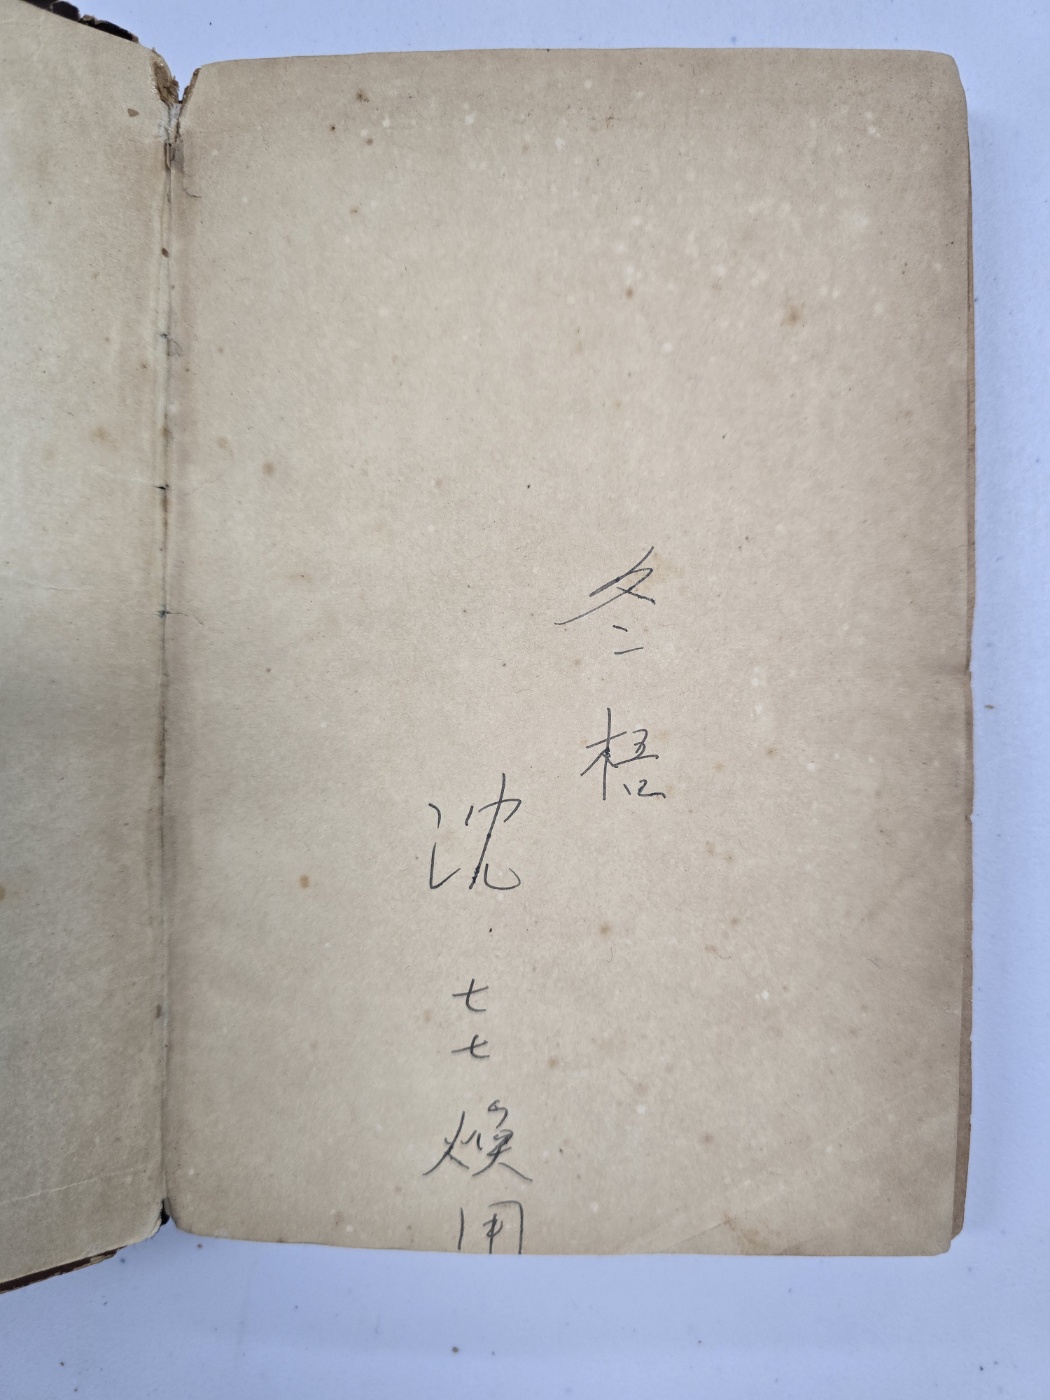 冬梧
沈七七煥用